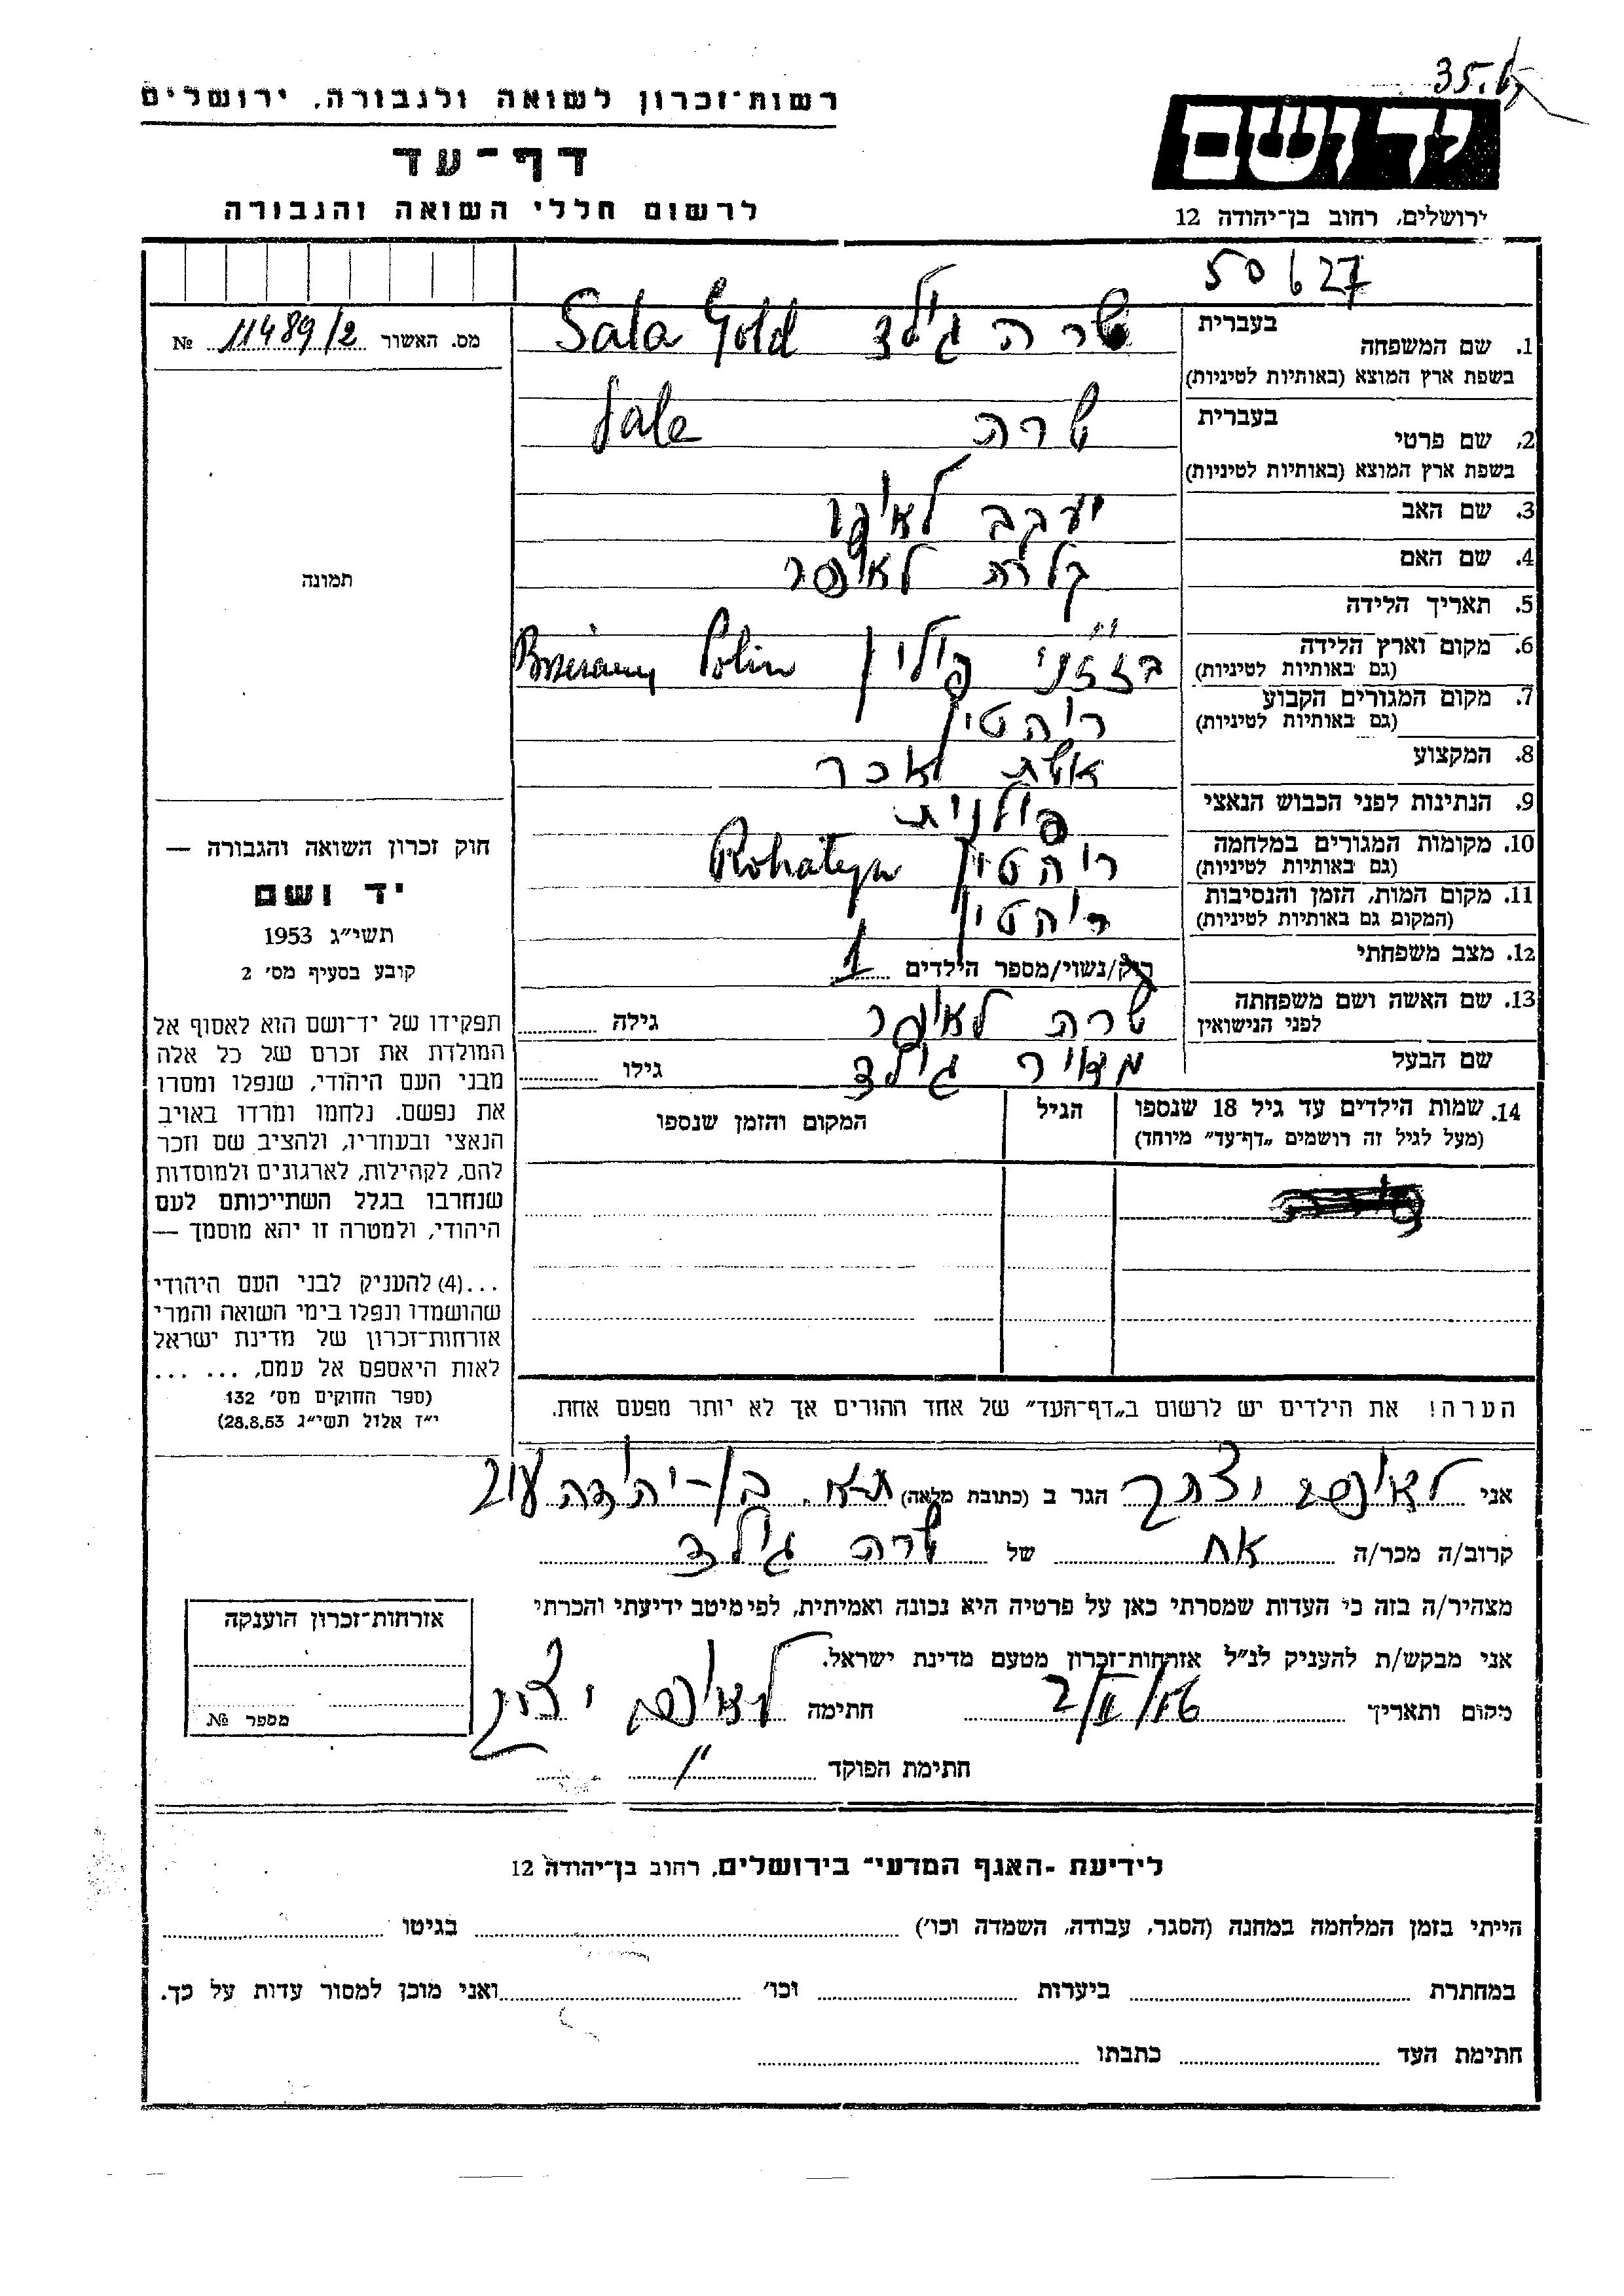 35.6
רשות־זכרון לשואה ולגבורה, ירושלים
יד ושם
דף־עד
לרשום חללי השואה והגבורה
ירושלים, רחוב בן־יהודה 12
50627
מס. האשור № 11489/2
בעברית
1. שם המשפחה שרה גולד Sala Gold
בשפת ארץ המוצא (באותיות לטיניות)
בעברית
2. שם פרטי שרה Sale
בשפת ארץ המוצא (באותיות לטיניות)
3. שם האב יעקב
4. שם האם קלרה
תמונה
5. תאריך הלידה
6. מקום וארץ הלידה פולין Polin
(גם באותיות לטיניות)
7. מקום המגורים הקבוע רוהטין
(גם באותיות לטיניות)
8. המקצוע אשת
9. הנתינות לפני הכבוש הנאצי פולנית
10. מקומות המגורים במלחמה רוהטין Rohatyn
(גם באותיות לטיניות)
11. מקום המות, הזמן והנסיבות רוהטין
(המקום גם באותיות לטיניות)
12. מצב משפחתי רוק/נשוי/מספר הילדים 1
13. שם האשה ושם משפחתה שרה גילה
לפני הנישואין
שם הבעל מאיר גולד גילו
14. שמות הילדים עד גיל 18 שנספו הגיל המקום והזמן שנספו
(מעל לגיל זה רושמים „דף־עד” מיוחד)
חוק זכרון השואה והגבורה —
יד ושם
תשי״ג 1953
קובע בסעיף מס׳ 2
תפקידו של יד־ושם הוא לאסוף אל
המולדת את זכרם של כל אלה
מבני העם היהודי, שנפלו ומסרו
את נפשם. נלחמו ומרדו באויב
הנאצי ובעוזריו, ולהציב שם וזכר
להם, לקהילות, לארגונים ולמוסדות
שנחרבו בגלל השתייכותם לעם
היהודי, ולמטרה זו יהא מוסמך —
...(4) להעניק לבני העם היהודי
שהושמדו ונפלו בימי השואה והמרי
אזרחות־זכרון של מדינת ישראל
לאות היאספם אל עמם, ... ...
(ספר החוקים מס׳ 132
י״ז אלול תשי״ג 28.8.53)
הערה! את הילדים יש לרשום ב„דף־העד” של אחד ההורים אך לא יותר מפעם אחת.
אני יצחק הגר ב (כתובת מלאה) ת-א. בן-יהודה
קרוב/ה מכר/ה אח של שרה גולד
מצהיר/ה בזה כי העדות שמסרתי כאן על פרטיה היא נכונה ואמיתית, לפי מיטב ידיעתי והכרתי
אני מבקש/ת להעניק לנ״ל אזרחות־זכרון מטעם מדינת ישראל.
מקום ותאריך 2/II/56 חתימה
חתימת הפוקד
אזרחות־זכרון הוענקה
מספר №
לידיעת ־האגף המדעי־ בירושלים, רחוב בן־יהודה 12
הייתי בזמן המלחמה במחנה (הסגר, עבודה, השמדה וכו׳) בגיטו
במחתרת ביערות וכו׳ ואני מוכן למסור עדות על כך.
חתימת העד כתבתו